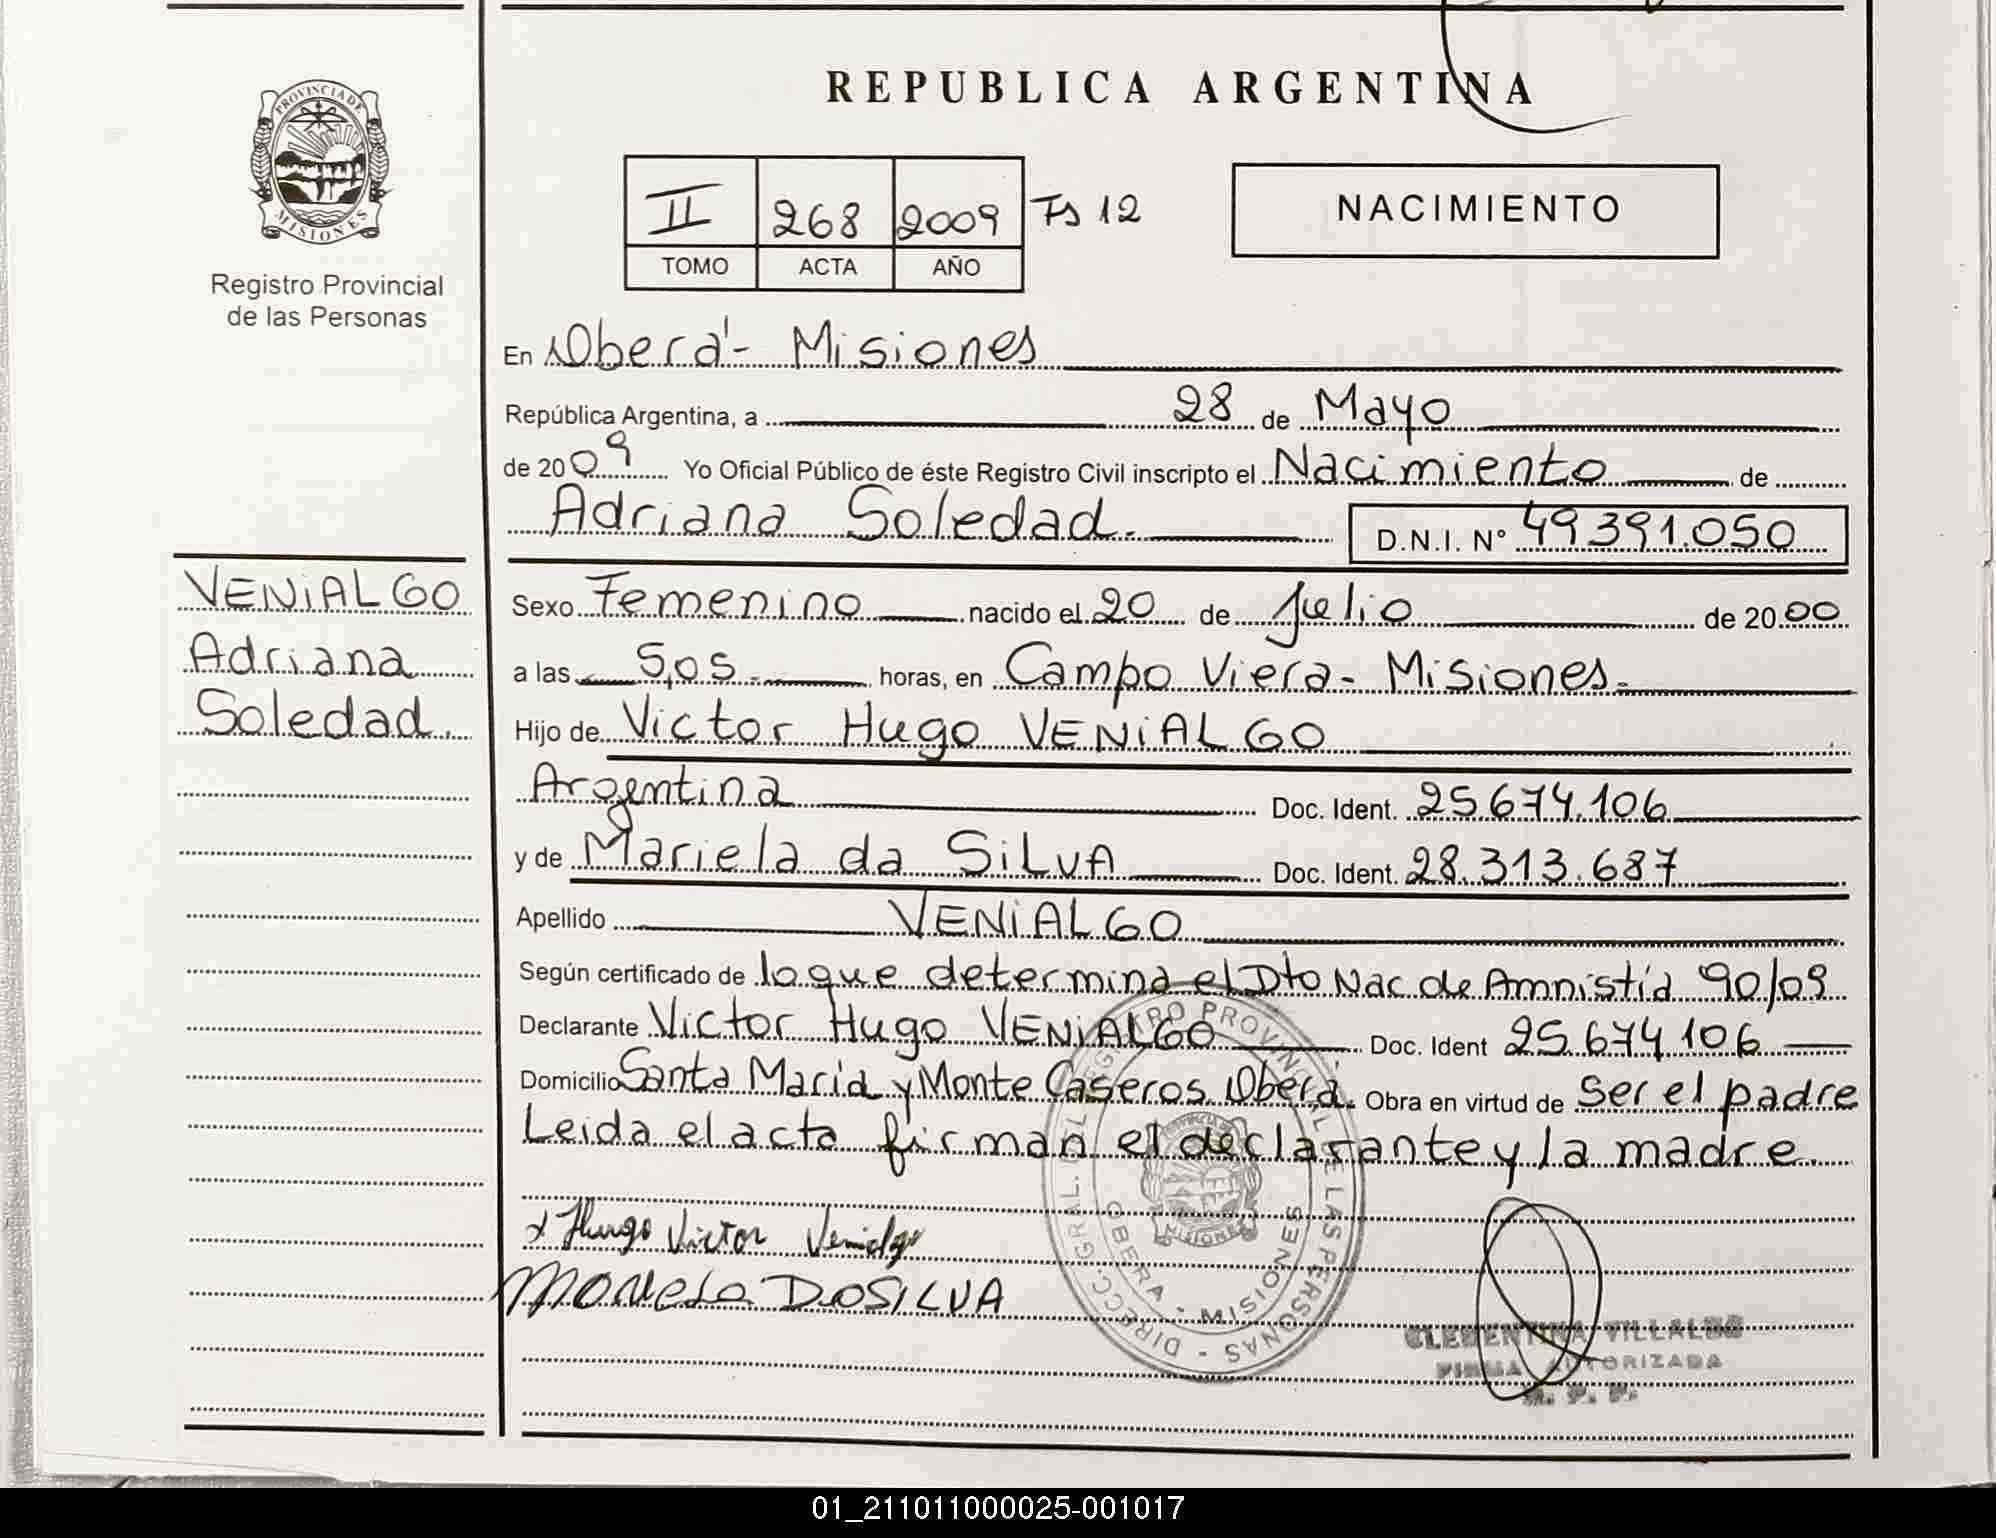 REPUBLICA ARGENTINA
PROVINCIA DE
MISIONES
Registro Provincial
de las Personas
II 268 2009 Fs 12
TOMO ACTA AÑO
NACIMIENTO
En Oberá - Misiones
República Argentina, a 28 de Mayo
de 2009 Yo Oficial Público de éste Registro Civil inscripto el Nacimiento de
Adriana Soledad. D.N.I. N° 49391.050
VENIALGO
Adriana
Soledad.
Sexo Femenino nacido el 20 de Julio de 2000
a las 5,05 horas, en Campo Viera - Misiones.
Hijo de Victor Hugo VENIALGO
Argentina Doc. Ident. 25674.106
y de Mariela da SILVA Doc. Ident. 28.313.687
Apellido VENIALGO
Según certificado de lo que determina el Dto Nac de Amnistía 90/09
Declarante Victor Hugo VENIALGO Doc. Ident 25.674 106
Domicilio Santa María y Monte Caseros Oberá. Obra en virtud de ser el padre
Leida el acta firman el declarante y la madre
x Hugo Victor Venialgo
DASILVA
DIRECC. GRAL. DEL REGISTRO PROVINCIAL DE LAS PERSONAS
OBERA - MISIONES
MISIONES
CLEMENTINA VILLALBO
FIRMA AUTORIZADA
R. P. P.
01_211011000025-001017